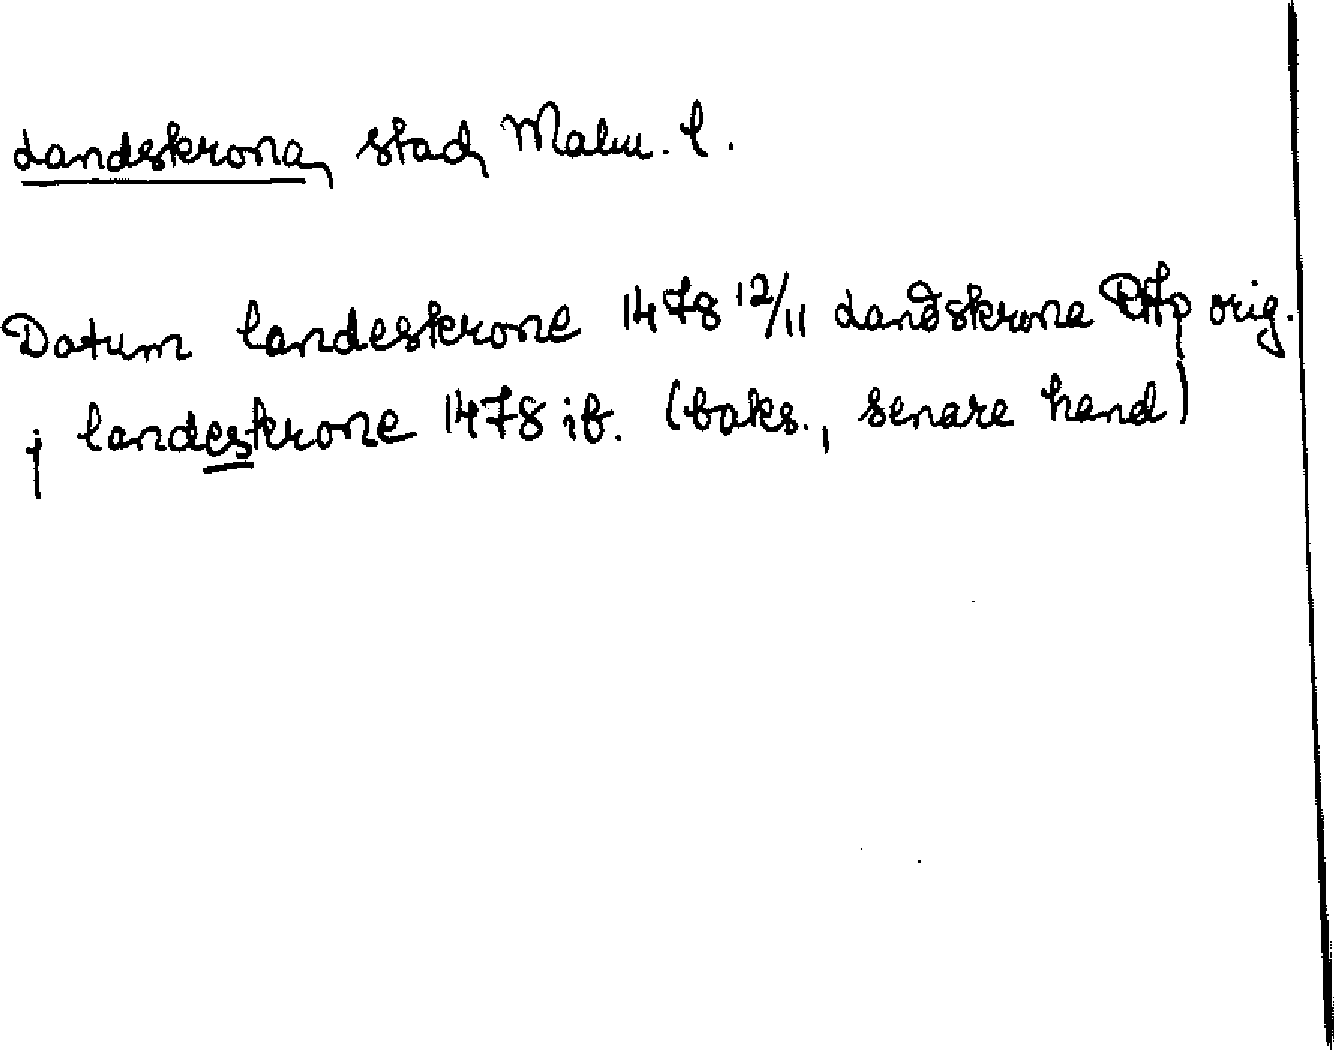 Landskrona, stad, Malm. l.
Datum landeskrone 1478 12/11 Landskrona RAp orig.
j landeskrone 1478 ib. (baks., senare hand)